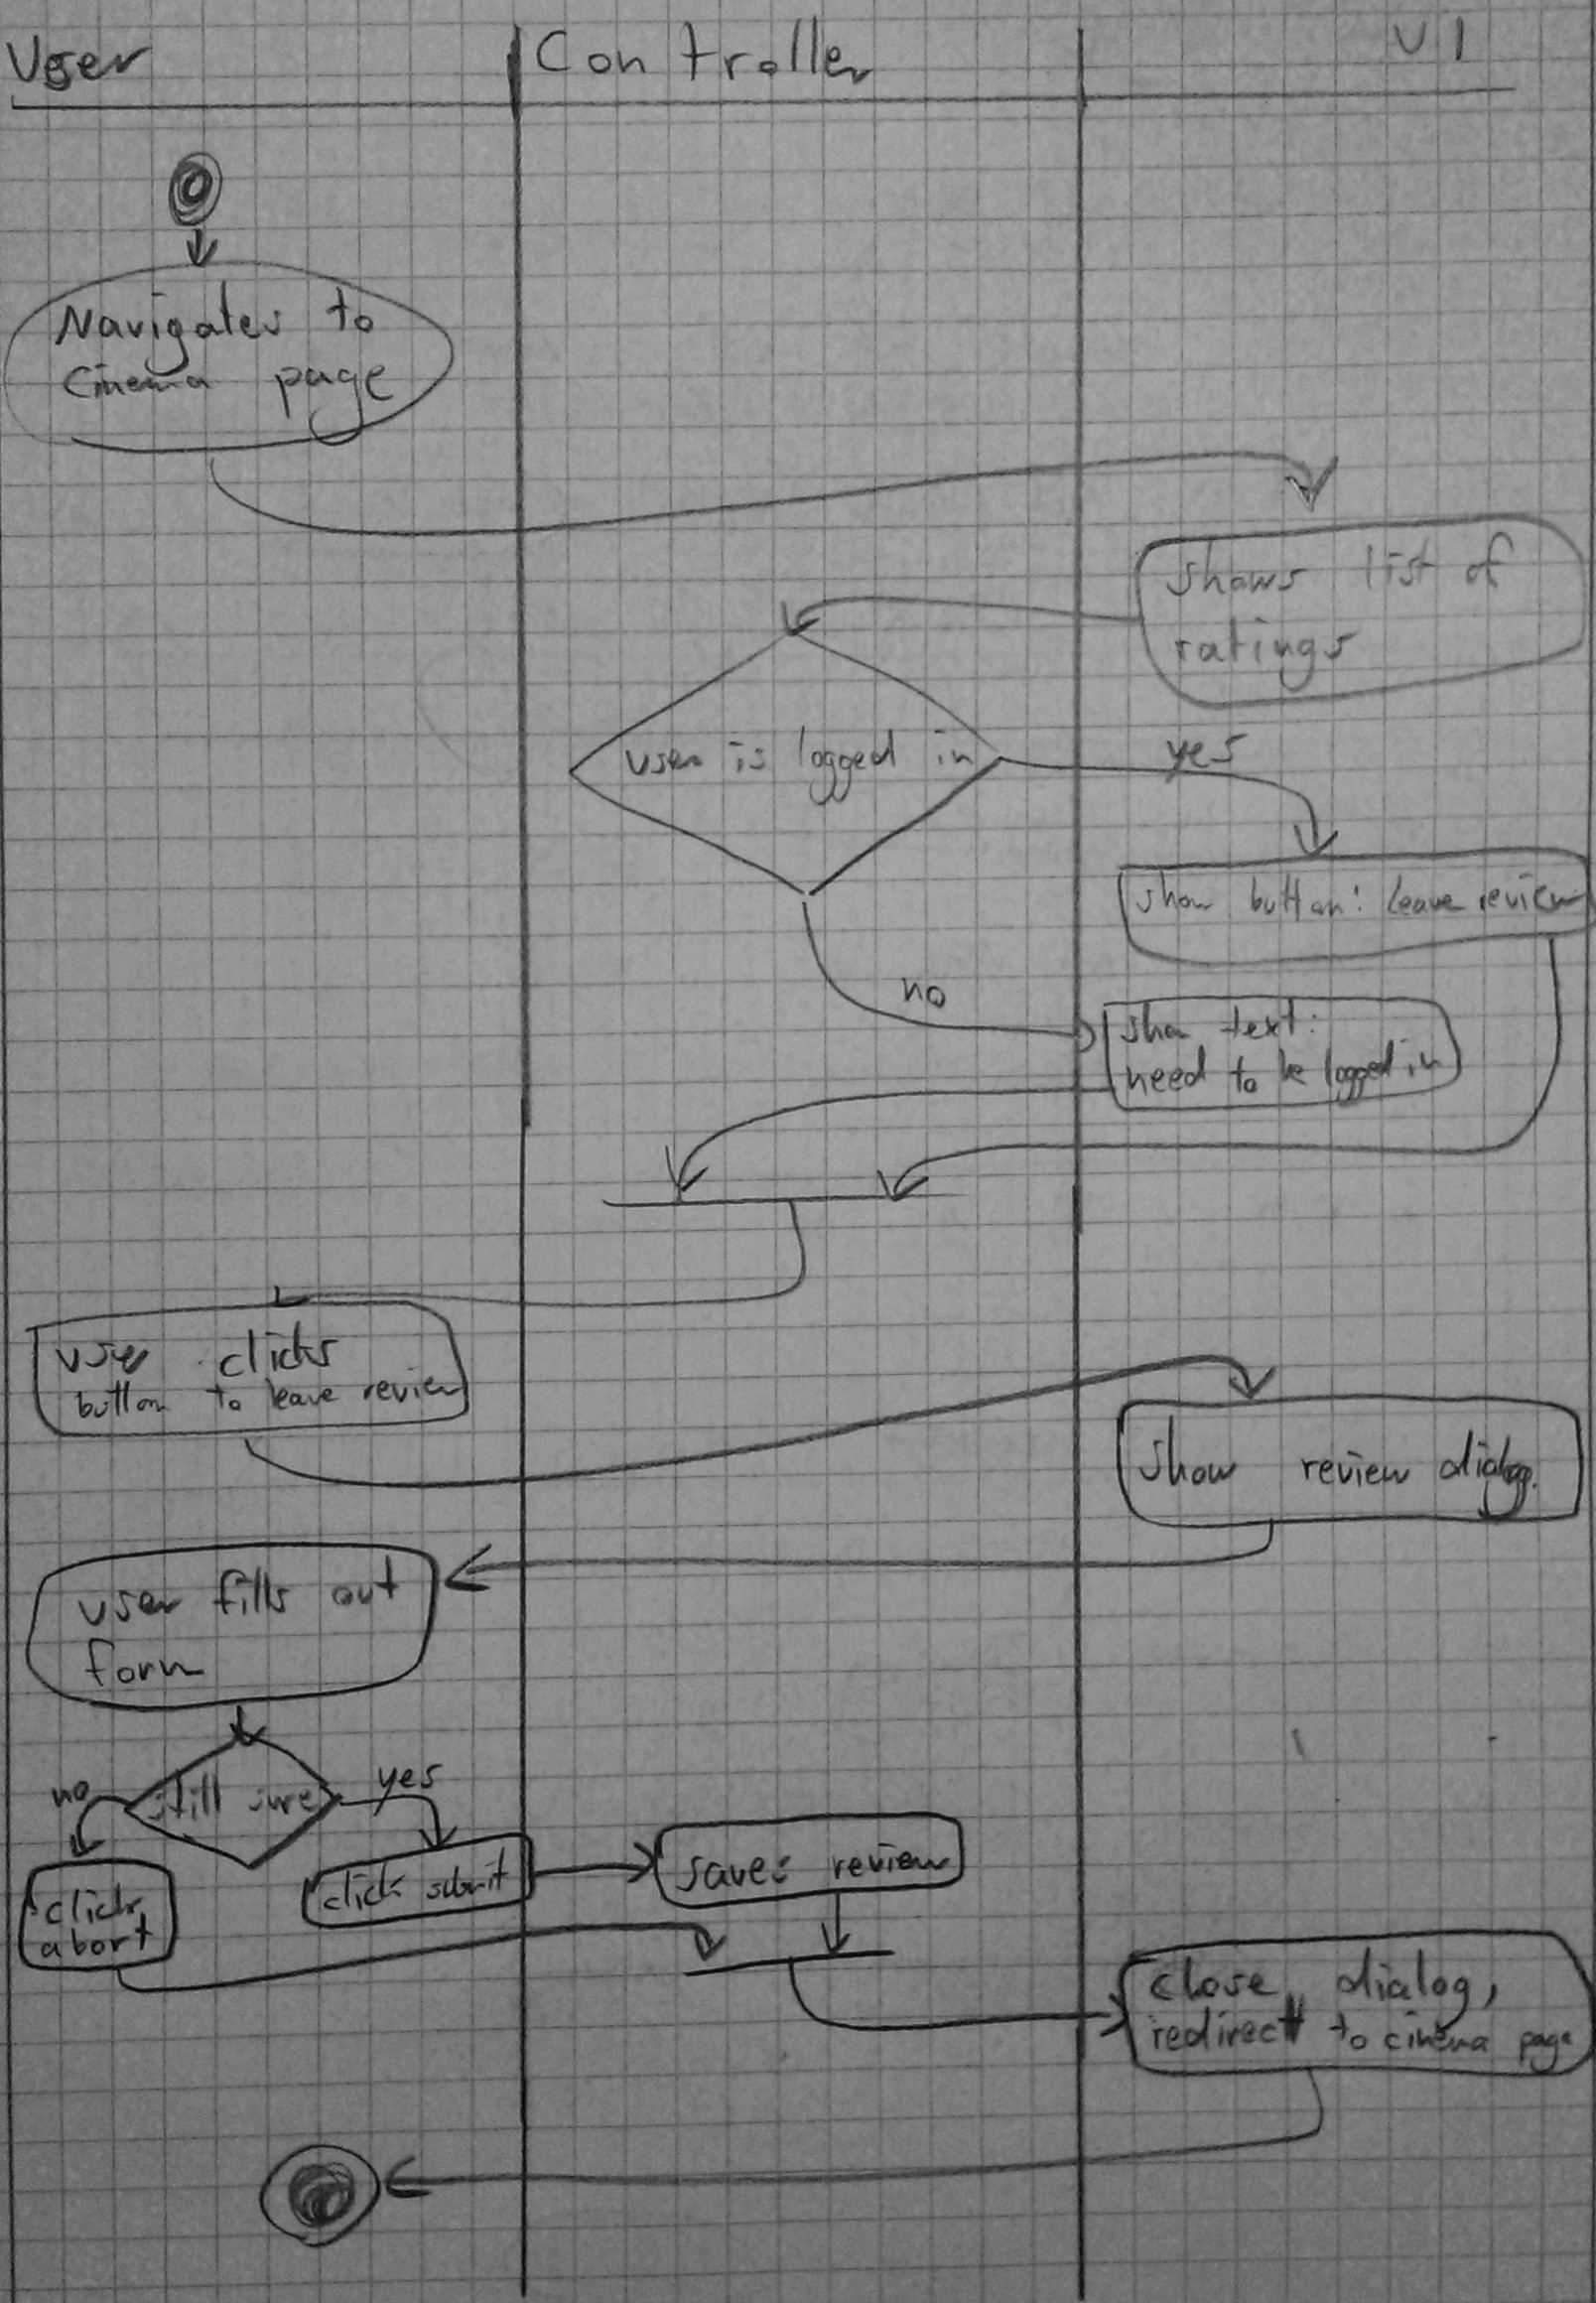 User
Controller
UI
Navigates to
cinema page
shows list of
ratings
user is logged in
yes
show button: leave review
no
show text:
need to be logged in
user clicks
button to leave review
show review dialog
user fills out
form
no
still sure
yes
click submit
saves review
clicks
abort
close dialog,
redirect to cinema page